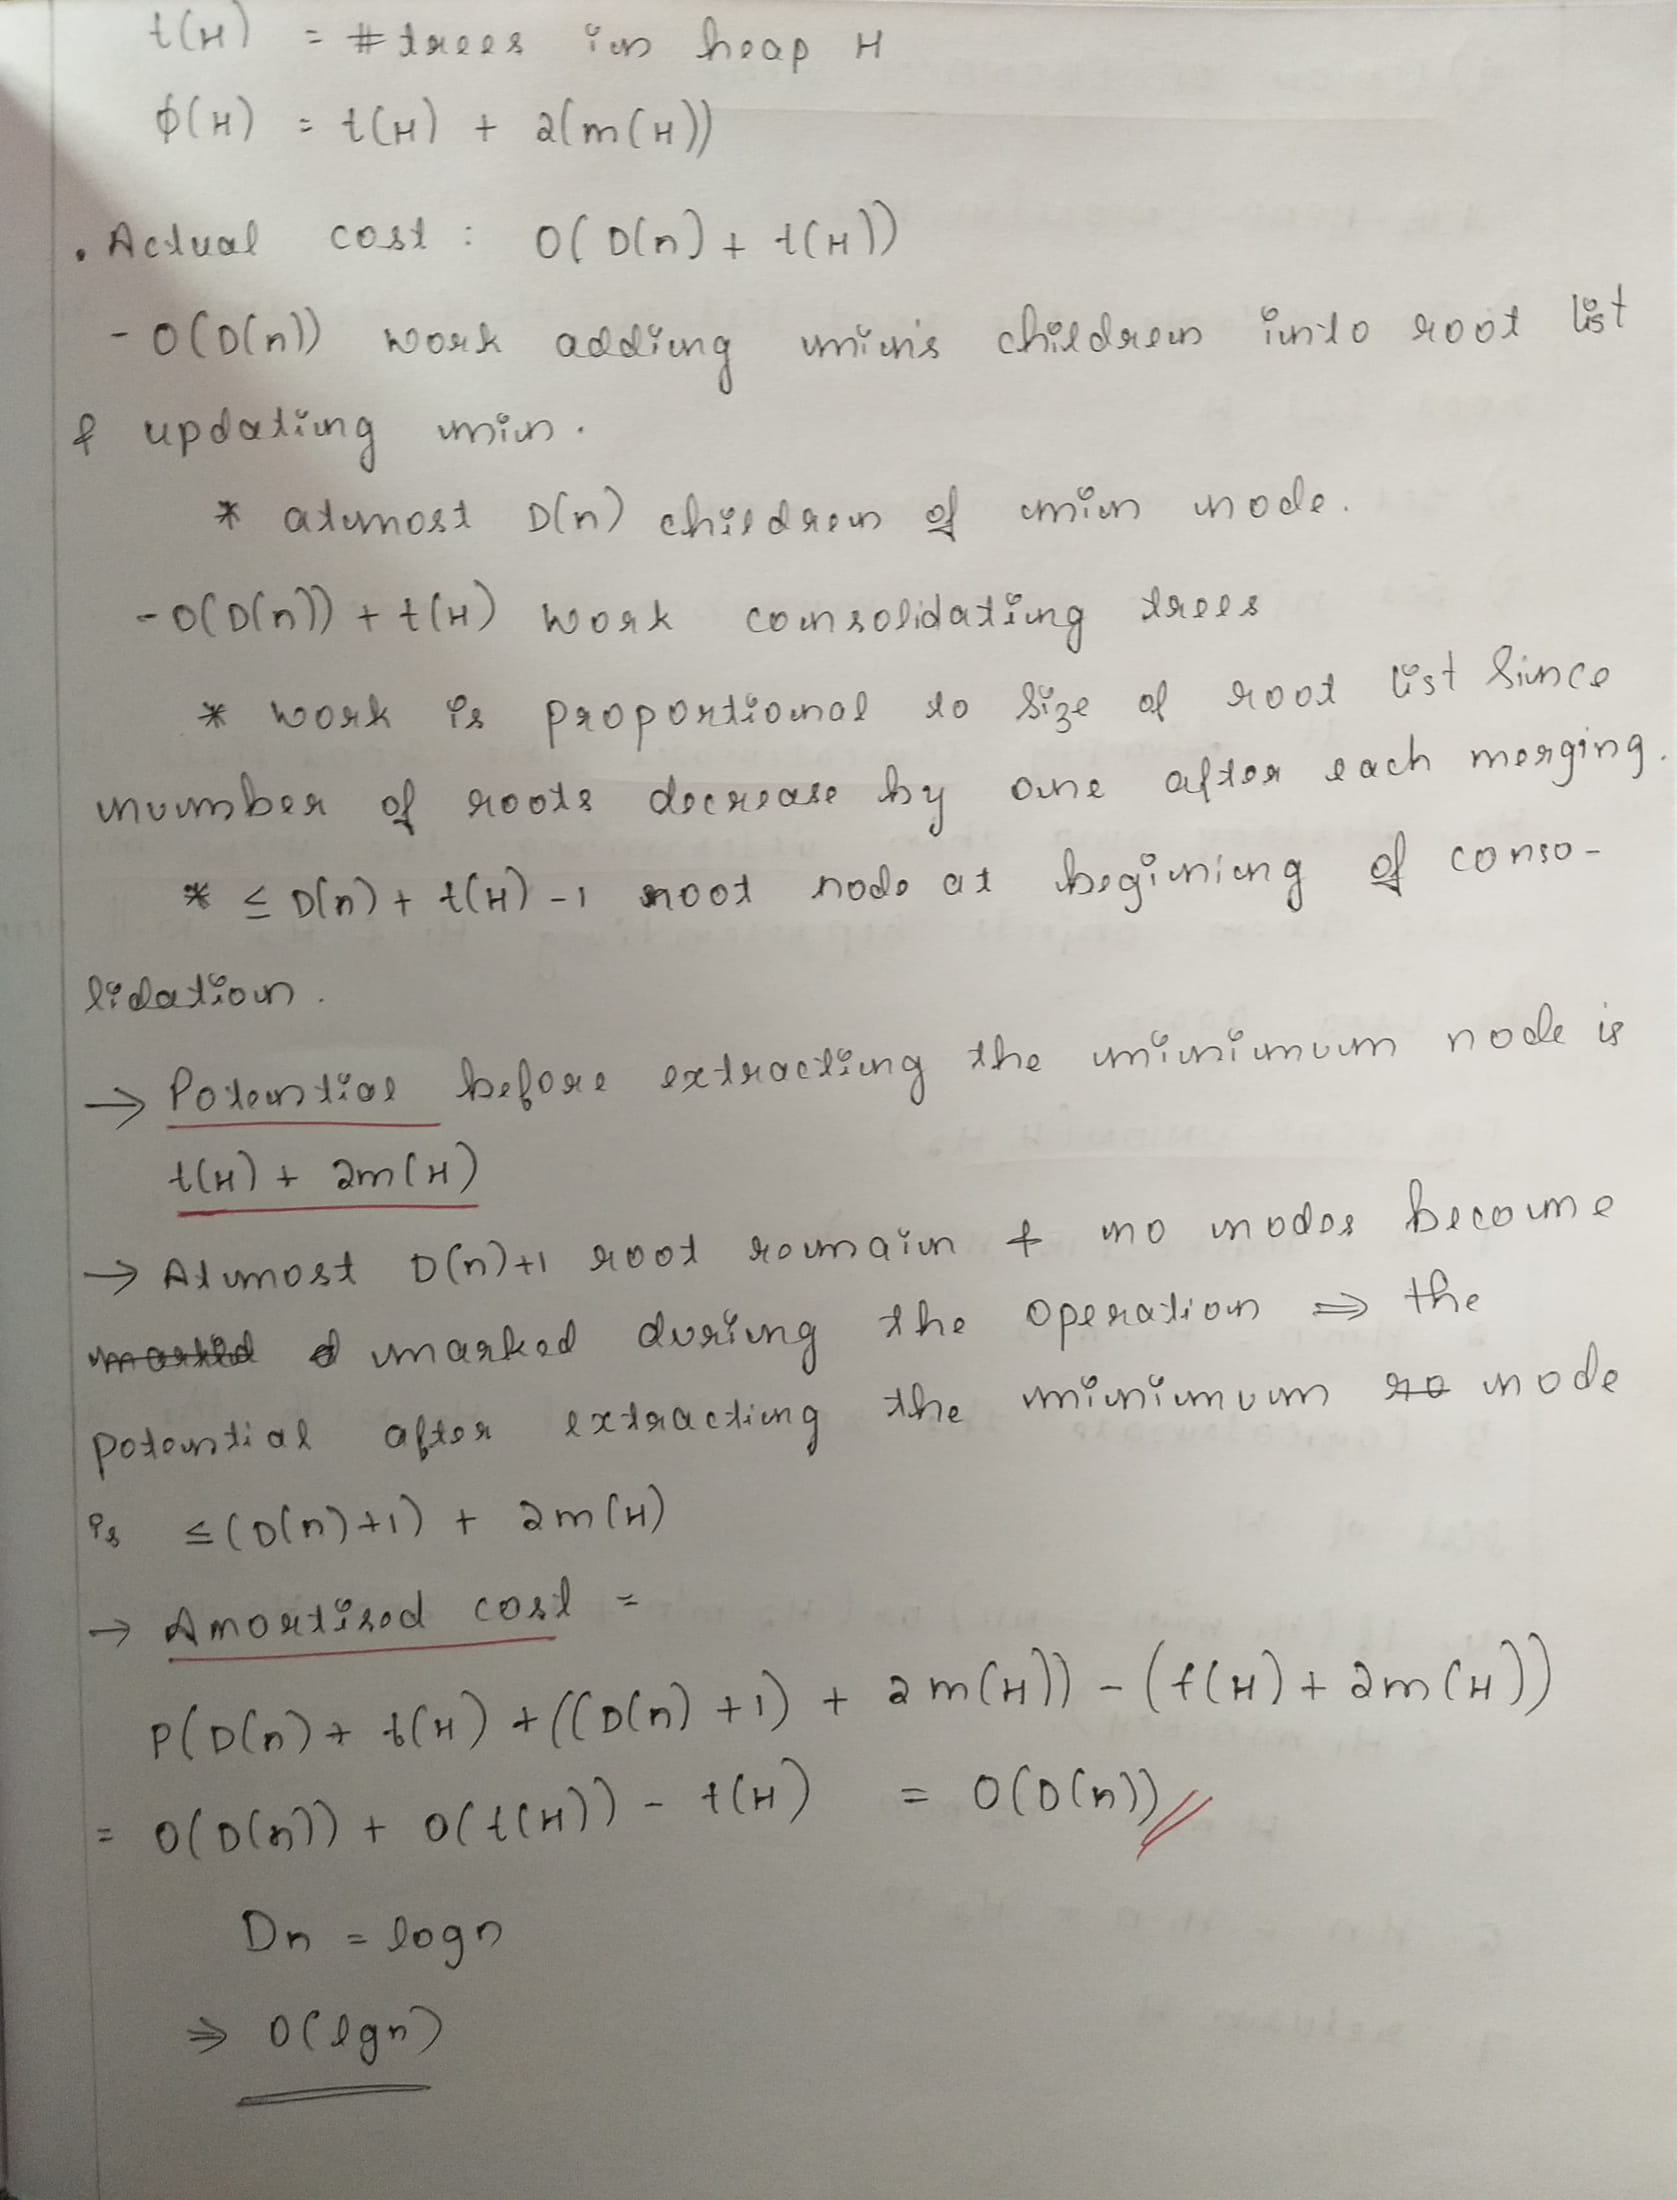 t(H) = # trees in heap H
φ(H) = t(H) + 2(m(H))
. Actual cost : O( D(n) + t(H))
- O(D(n)) work adding min's children into root list
& updating min.
* atmost D(n) children of min node.
- O(D(n)) + t(H) work consolidating trees
* work is proportional to size of root list since
number of roots decrease by one after each merging.
* ≤ D(n) + t(H) - 1 root node at begining of conso-
lidation.
→ Potential before extracting the minimum node is
t(H) + 2m(H)
→ Atmost D(n)+1 root remain & no nodes become
marked during the operation ⇒ the
potential after extracting the minimum node
is ≤ (D(n)+1) + 2m(H)
→ Amortised cost =
P(D(n) + t(H) + ((D(n) +1) + 2m(H)) - (t(H) + 2m(H))
= O(D(n)) + O(t(H)) - t(H) = O(D(n))
Dn = logn
⇒ O(lgn)